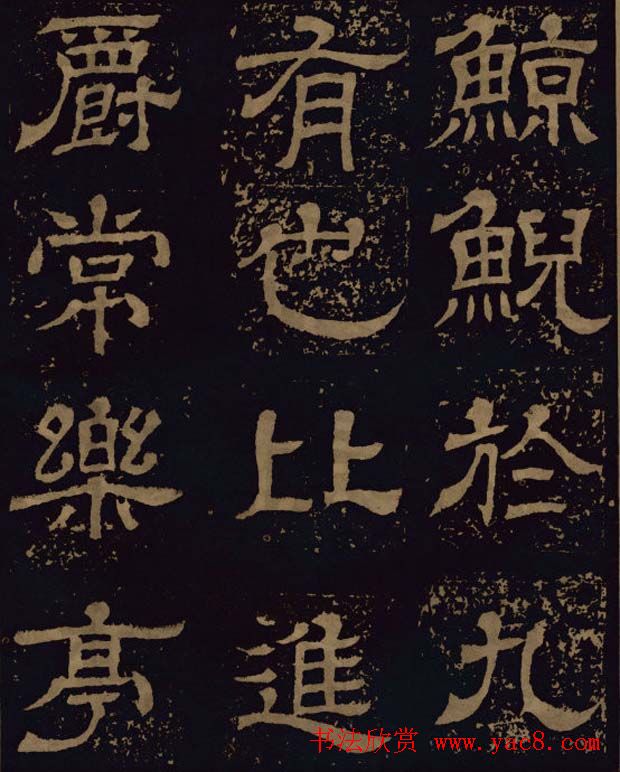 鯨鯢於九
有也比進
爵常樂亭
书法欣赏 www.yac8.com